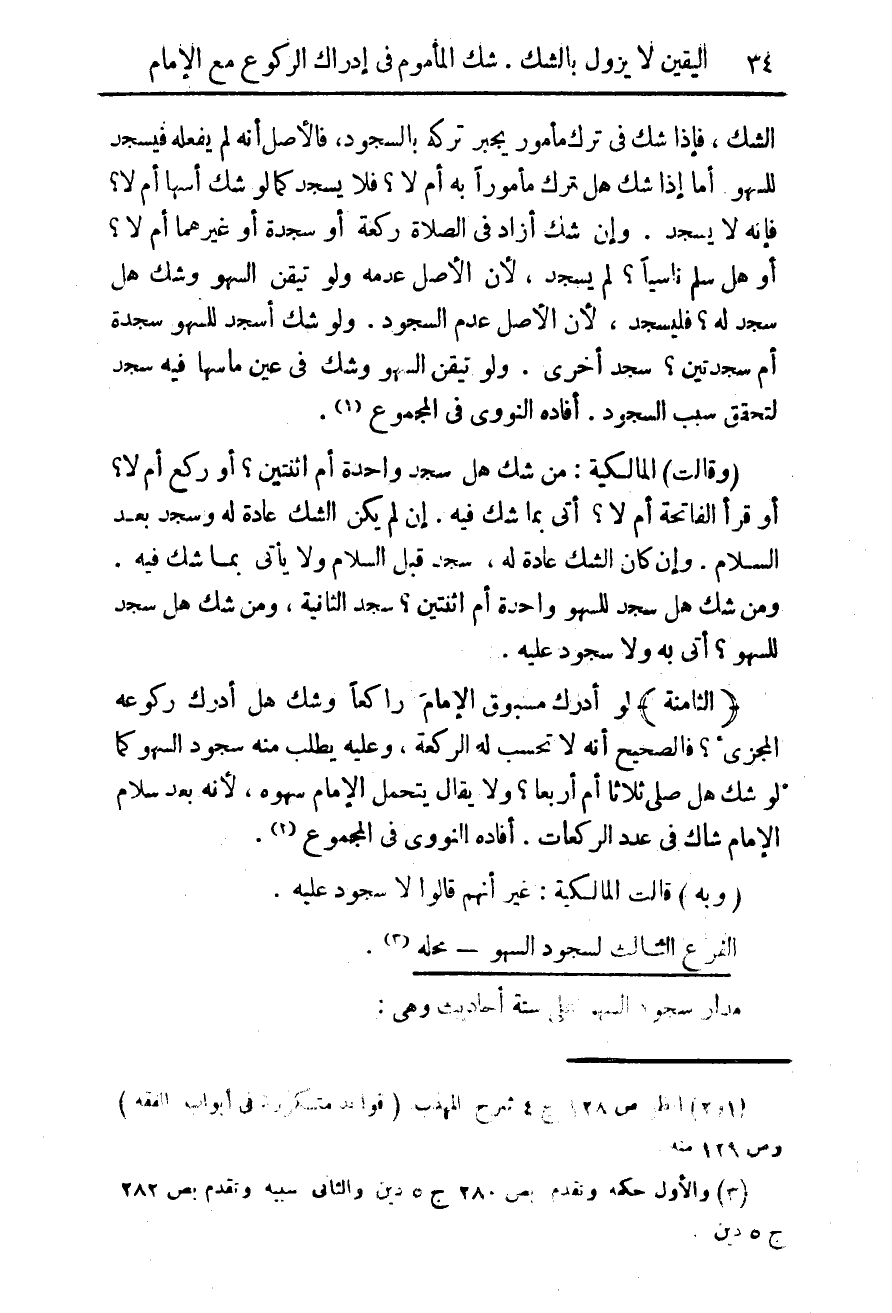 ٣٤ اليقين لا يزول بالشك . شك المأموم فى إدراك الركوع مع الإمام
الشك ، فإذا شك فى ترك مأمور يجبر تركه بالسجود، فالأصل أنه لم يفعله فيسجد
للسهو . أما إذا شك هل ترك مأموراً به أم لا ؟ فلا يسجد كما لو شك أسها أم لا؟
فإنه لا يسجد . وإن شك أزاد فى الصلاة ركعة أو سجدة أو غيرهما أم لا ؟
أو هل سلم ناسياً ؟ لم يسجد ، لأن الأصل عدمه ولو تيقن السهو وشك هل
سجد له ؟ فليسجد ، لأن الأصل عدم السجود . ولو شك أسجد للسهو سجدة
أم سجدتين ؟ سجد أخرى . ولو تيقن السهو وشك فى عين ماسها فيه سجد
لتحقق سبب السجود . أفاده النووى فى المجموع (١) .
(وقالت) المالكية : من شك هل سجد واحدة أم اثنتين ؟ أو ركع أم لا؟
أو قرأ الفاتحة أم لا ؟ أتى بما شك فيه . إن لم يكن الشك عادة له وسجد بعد
السلام . وإن كان الشك عادة له ، سجد قبل السلام ولا يأتى بما شك فيه .
ومن شك هل سجد للسهو واحدة أم اثنتين ؟ سجد الثانية ، ومن شك هل سجد
للسهو ؟ أتى به ولا سجود عليه .
﴿ الثامنة ﴾ لو أدرك مسبوق الإمامَ راكعاً وشك هل أدرك ركوعه
المجزىء ؟ فالصحيح أنه لا تحسب له الركعة ، وعليه يطلب منه سجود السهو كما
لو شك هل صلى ثلاثا أم أربعا ؟ ولا يقال يتحمل الإمام سهوه ، لأنه بعد سلام
الإمام شاك فى عدد الركعات . أفاده النووى فى المجموع (٢) .
( وبه ) قالت المالكية : غير أنهم قالوا لا سجود عليه .
الفرع الثالث لسجود السهو — محله (٣) .
مدار سجود السهو على ستة أحاديث وهى :
(١و٢) انظر ص ١٢٨ ج ٤ شرح المهذب ( قواعد متكررة فى أبواب الفقه )
وص ١٢٩ منه
(٣) والأول حكمه وتقدم بص ٢٨٠ ج ٥ دين والثانى سببه وتقدم بص ٢٨٢
ج ٥ دين .